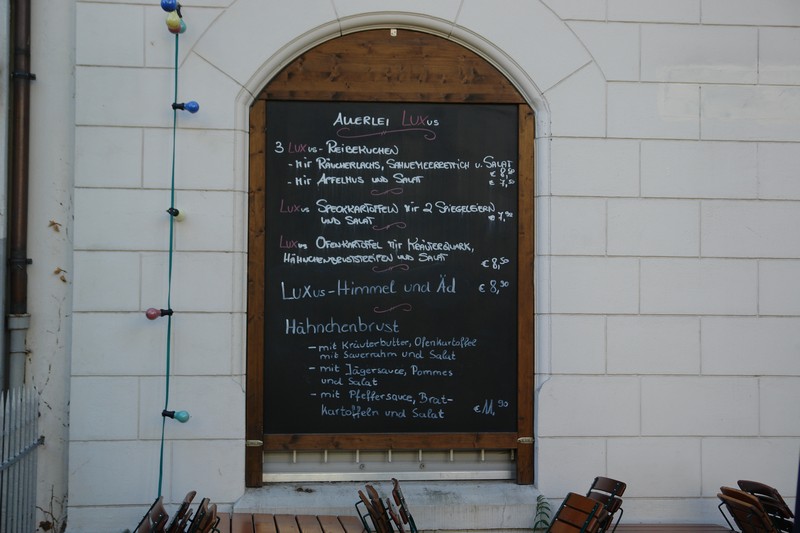 ALLERLEI LUXUS
3 LUXUS-REIBEKUCHEN
- MIT RÄUCHERLACHS, SAHNEMEERRETTICH U. SALAT
€ 8,50
- MIT APFELMUS UND SALAT € 7,50
LUXUS SPECKKARTOFFELN MIT 2 SPIEGELEIERN
UND SALAT € 7,90
LUXUS OFENKARTOFFEL MIT KRÄUTERQUARK,
HÄHNCHENBRUSTSTREIFEN UND SALAT € 8,50
LUXUS-Himmel und Äd € 8,90
Hähnchenbrust
- mit Kräuterbutter, Ofenkartoffel
mit Sauerrahm und Salat
- mit Jägersauce, Pommes
und Salat
- mit Pfeffersauce, Brat-
kartoffeln und Salat € 11,90